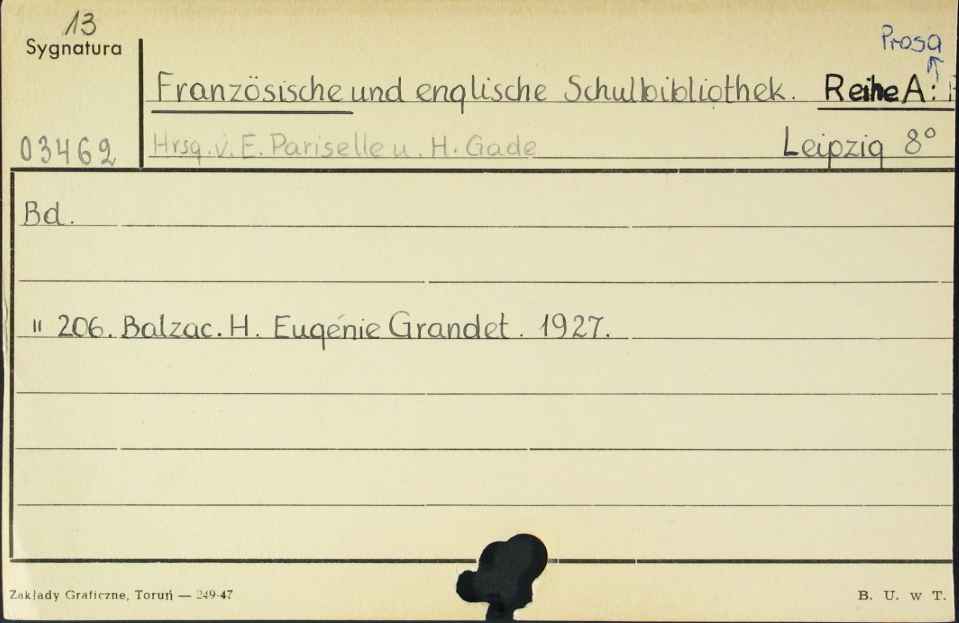 13
Sygnatura
Prosa
Französische und englische Schulbibliothek. Reihe A:
03462 Hrsg. v. E. Pariselle u. H. Gade Leipzig 8°
Bd.
" 206. Balzac. H. Eugénie Grandet. 1927.
Zakłady Graficzne, Toruń — 249-47 B. U. w T.